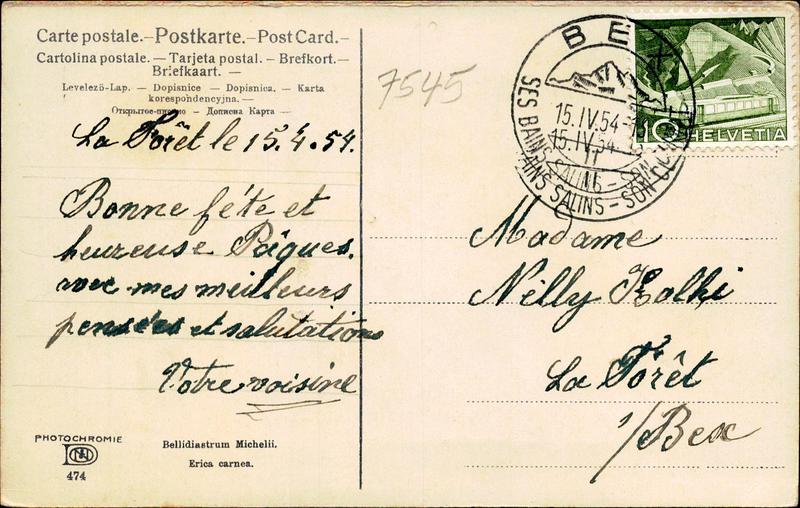 Carte postale.—Postkarte.—Post Card.—
Cartolina postale. — Tarjeta postal. — Brefkort. —
Briefkaart. —
Levelező-Lap. — Dopisnice — Dopisnica. — Karta
korespondencyjna. —
Открытое-письмо — Дописна Карта —
7545
La Forêt le 15.4.54.
Bonne fête et
heureuse Pâques.
avec mes meilleurs
pensées et salutations
Votre voisine
PHOTOCHROMIE
474
Bellidiastrum Michelii.
Erica carnea.
BEX
15.IV.54
15.IV.54
SES BAINS SALINS - SON
10 HELVETIA
Madame
Nelly
La Forêt
s/Bex